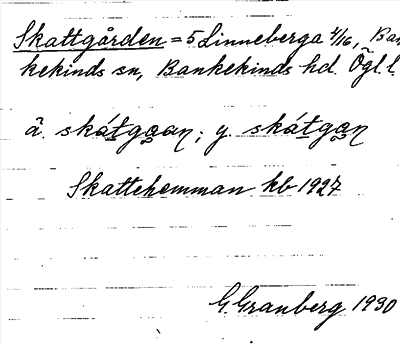 Skattgården = 5 Linneberga 4/16, Ban
kekinds sn, Bankekinds hd. Ögl. l.
ä. skátgaan; y. skátgan
Skattehemman kb 1927
G. Granberg 1930